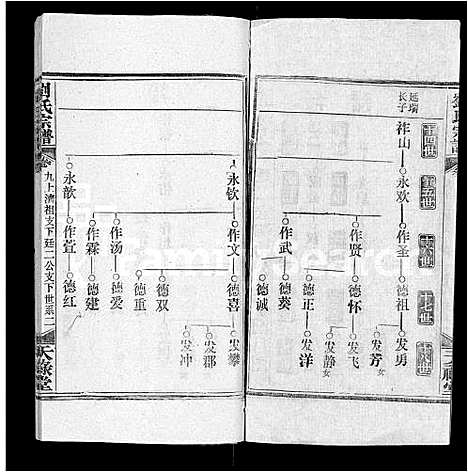 延瑞
长子
祚山
永欢
作圣
德祖
发勇
发芳
女
作贤
德怀
发飞
发静
女
德正
发洋
作武
德葵
德诚
十四世
十五世
十六世
十七世
十八世
永钦
作文
德喜
发攀
发郡
发冲
德双
德重
作汤
德爱
作霖
德建
永歆
作萱
德红
劉氏宗譜
卷九上濟祖支下廷二公支下世系二
天祿堂